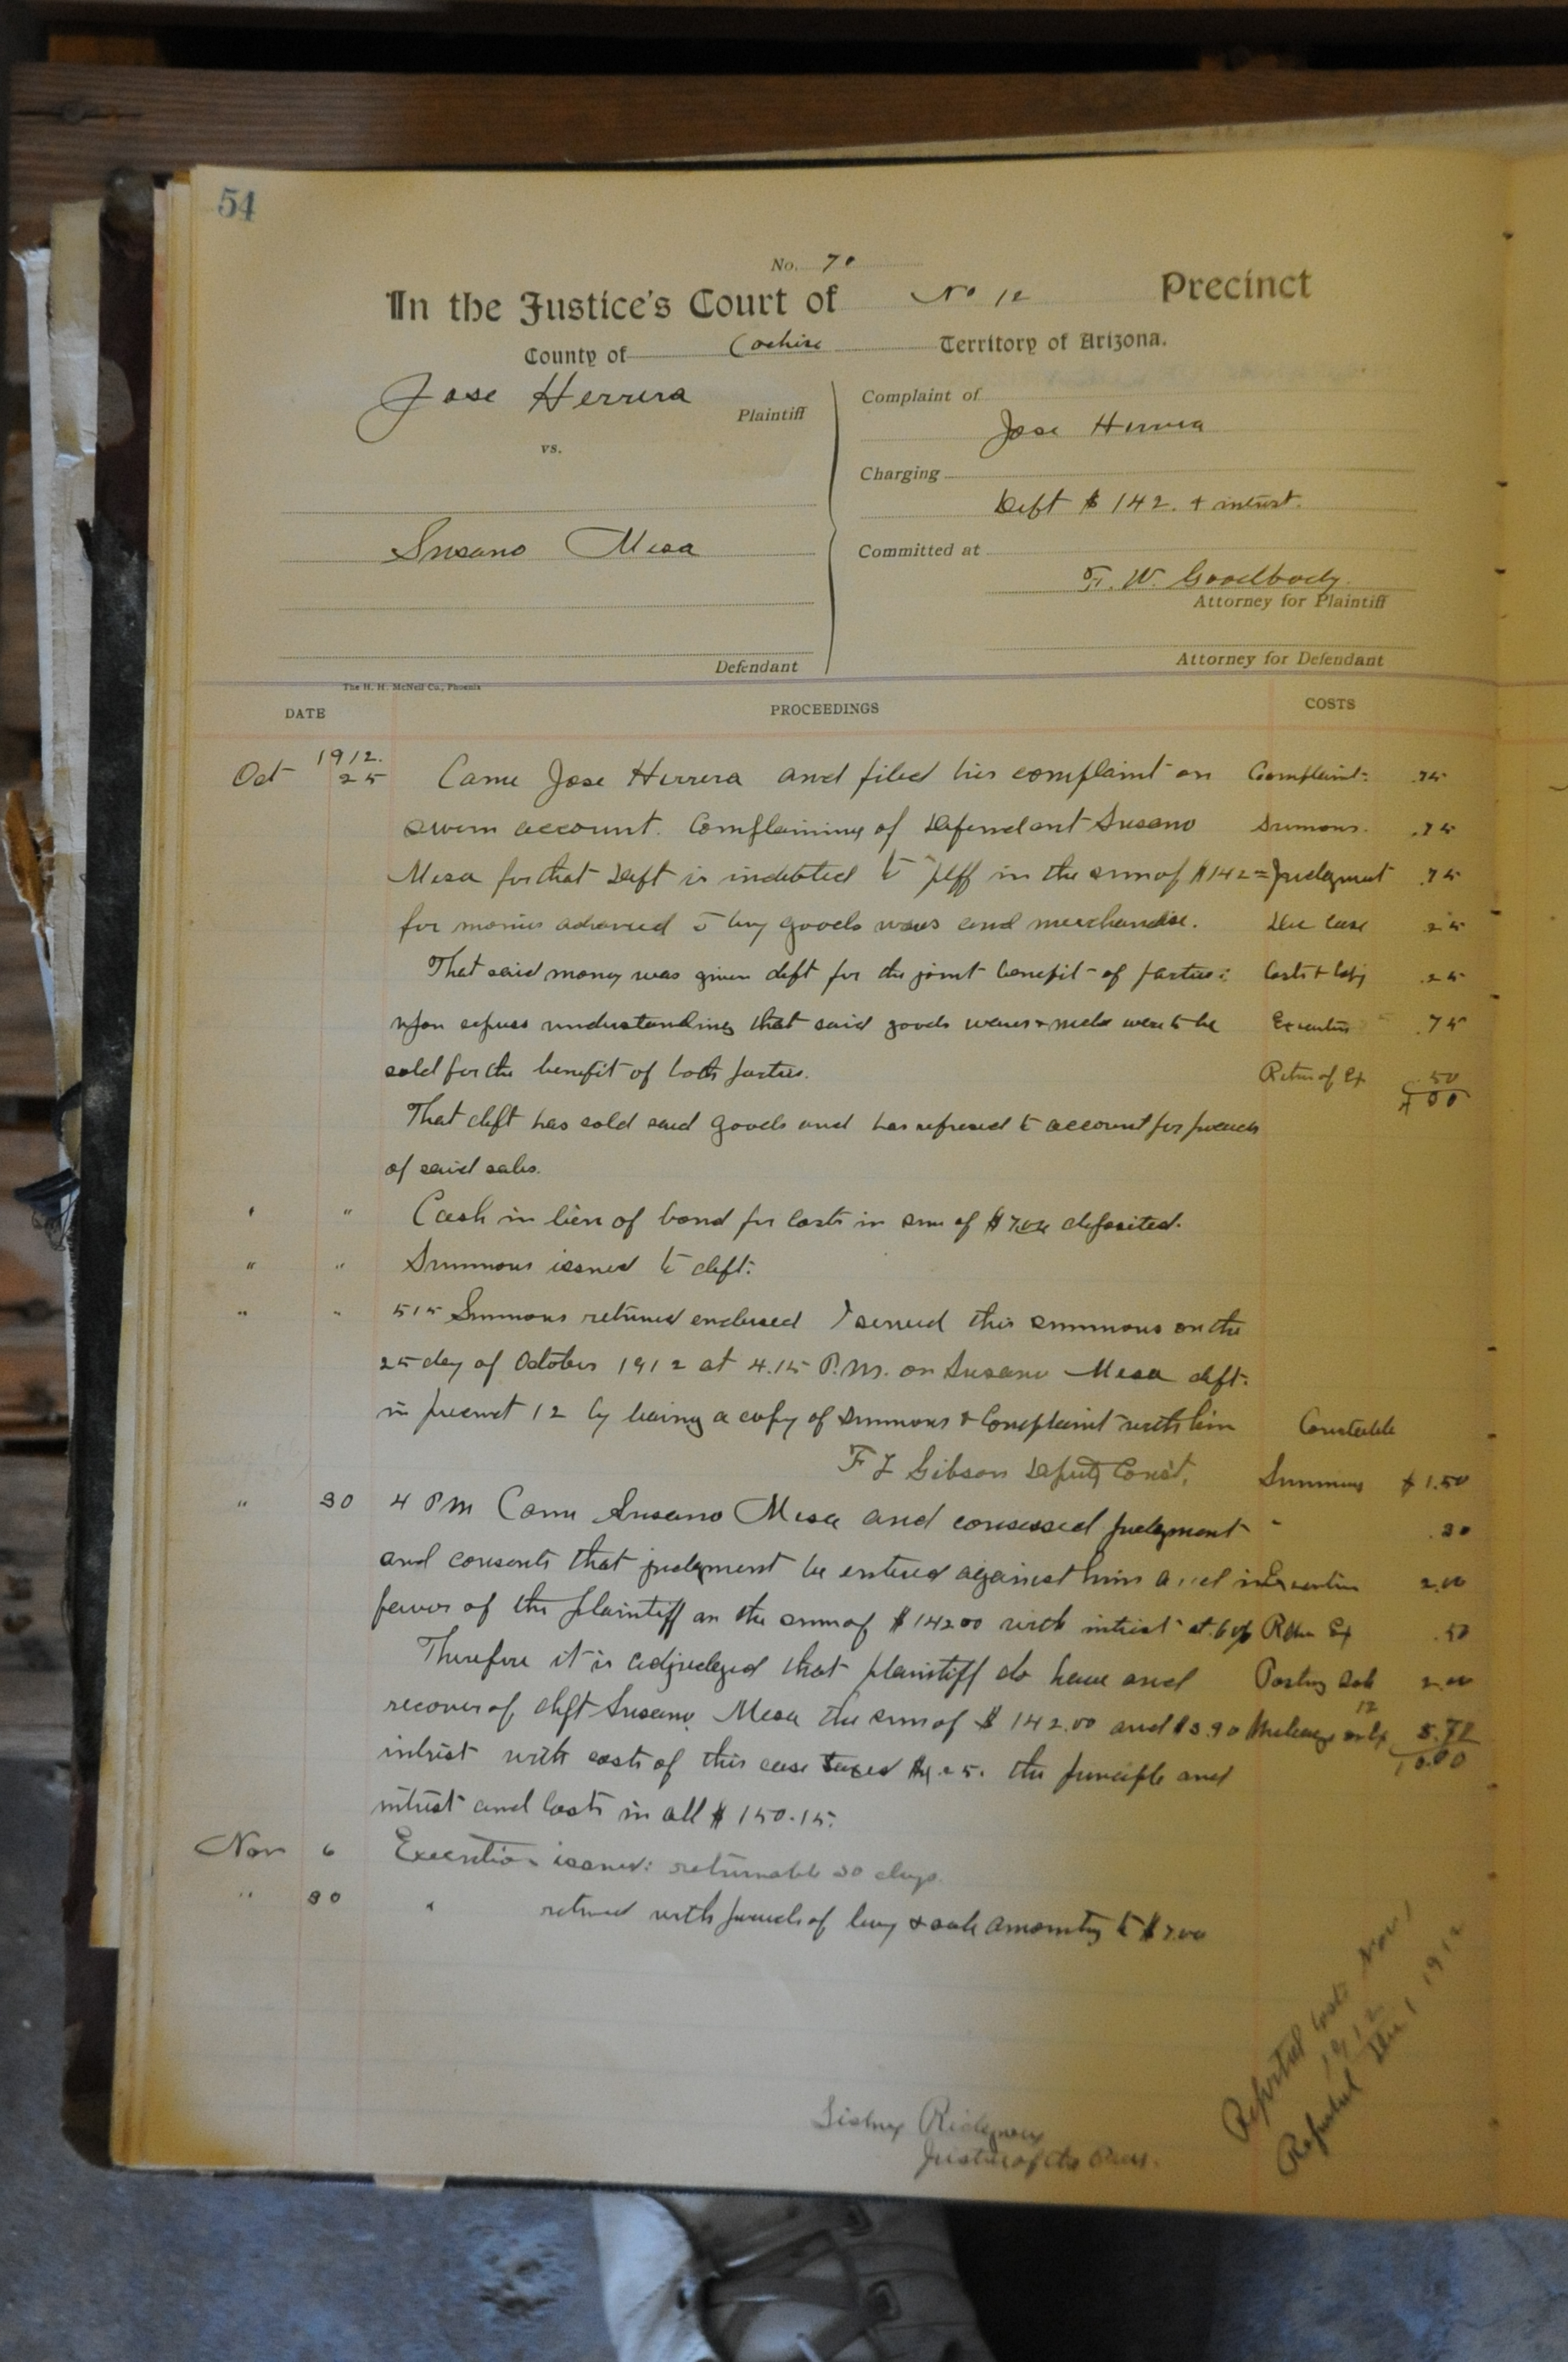 54
No. 70
In the Justice's Court of No 12 Precinct
County of Cochise Territory of Arizona.
Jose Herrera
Plaintiff
vs.
Susano Mesa
Defendant
Complaint of
Jose Herrera
Charging
Deft $ 142. + intrest.
Committed at
F. W. Goodbody.
Attorney for Plaintiff
Attorney for Defendant
The H. H. McNeil Co., Phoenix
DATE PROCEEDINGS COSTS
1912.
Oct 25 Came Jose Herrera and filed his complaint on Complaint .75
sworn account. Complaining of Defendant Susano Summons. .75
Mesa for that Deft is indebted to plff in the sum of $142= Judgment .75
for monies advanced to buy goods wares and merchandise. case .25
That said money was given deft for the joint benefit of parties: Costs + .25
upon express understanding that said goods wares + mdse were to be Execution .75
sold for the benefit of both parties. Return of Ex .50
4 00
That deft has sold said goods and has refused to account for proceeds
of said sales.
" " Cash in lieu of bond for costs in sum of deposited.
" " Summons issued to deft.
" " 515 Summons returned endorsed I served this summons on the
25 day of October 1912 at 4.15 P.M. on Susano Mesa deft.
in precinct 12 by leaving a copy of summons & Complaint with him Constable
F L Gibson Deputy Const. Summons $ 1.50
" 30 4 PM Came Susano Mesa and confessed judgment " .30
and consents that judgment be entered against him and in Execution 2.00
favor of the plaintiff in the sum of $142 00 with intrest at 6% Retn Ex .50
Therefore it is adjudged that plaintiff do have and Posting Sale 2.00
recover of deft Susano Mesa the sum of $ 142.00 and $3.90 Mileage 12
intrest with costs of this case taxed $4.25. the principle and
intrest and costs in all $ 150.15.
Nov 6 Execution issued: returnable 30 days.
" 30 " returned with proceeds of levy & sale amounting to $7.00
Reported costs Nov 1
1912
Reported Dec 1 1912
Sidney Ridgway
Justice of the Peace.